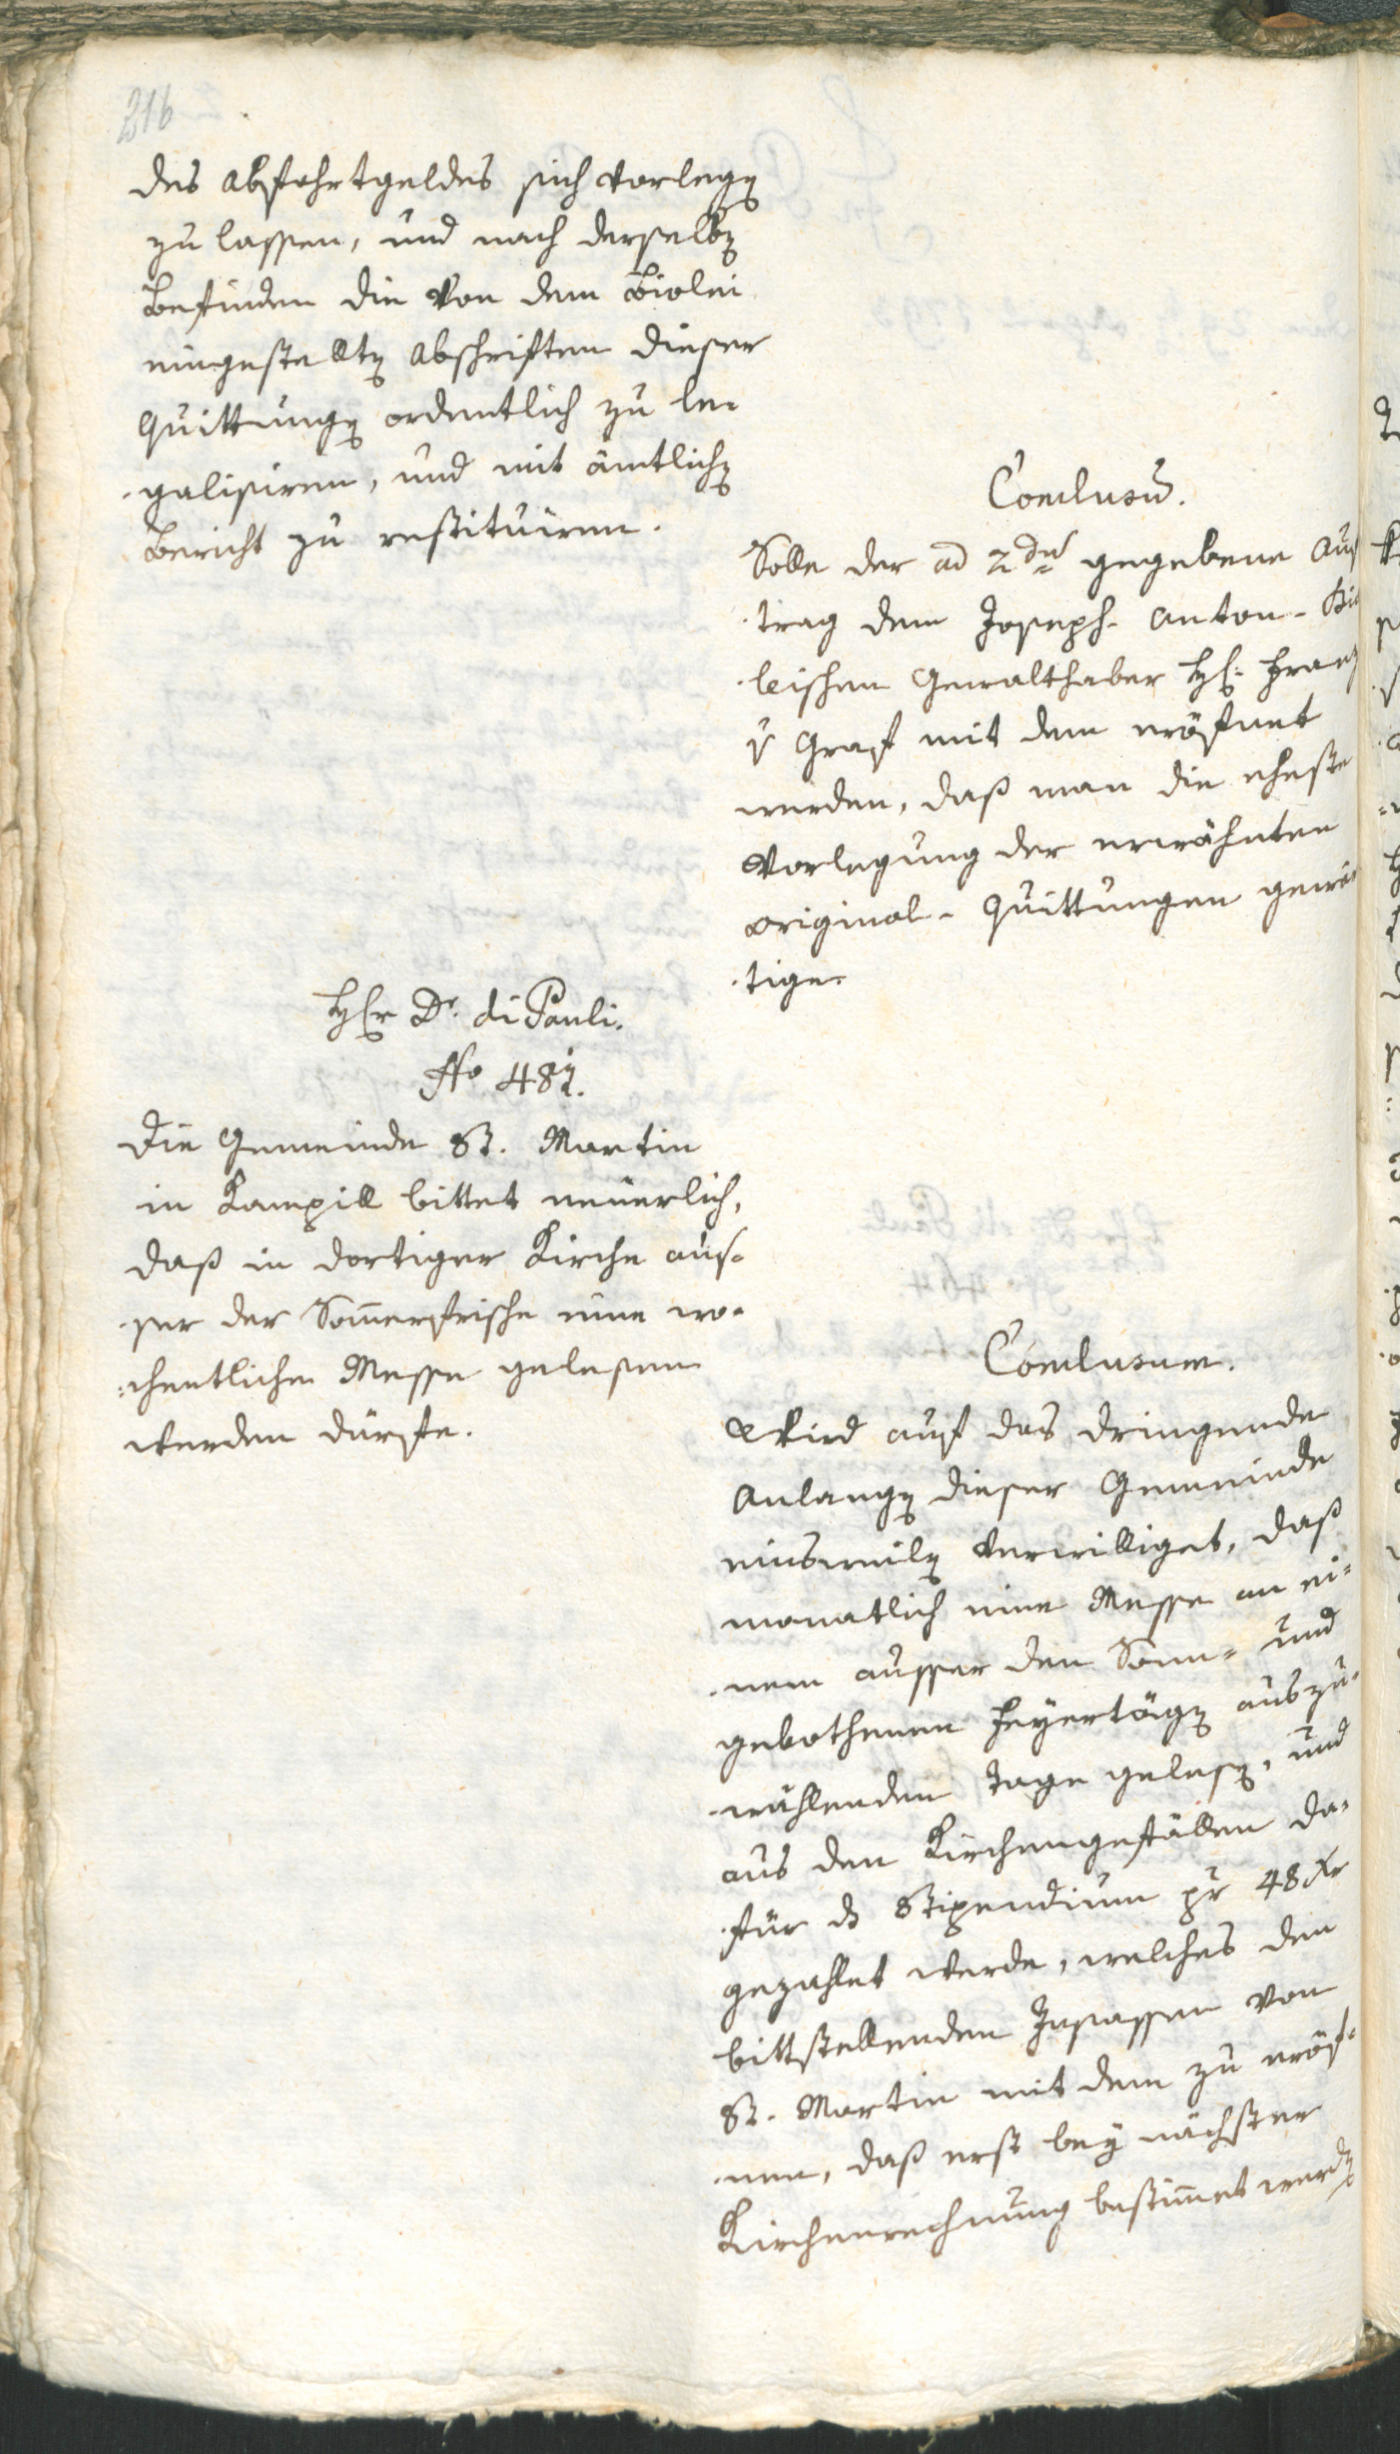 216
des Abfahrtgeldes sich vorlegen
zu lassen, und nach derselben
Befinden die von dem Biolei
eingestellten Abschriften dieser
Quittungen ordentlich zu le-
galisiren, und mit ämtlichen
Bericht zu restituiren.
Conclusum.
Solle der ad 2dum gegebene Auf
trag dem Joseph- Anton- Bio
leischen Gewalthaber H: Franz
v Graf mit dem eröfnet
werden, daß man die eheste
Vorlegung der erwähnten
Original- Quittungen gewär
tige
Hr Dr. di Pauli.
No 487.
Die Gemeinde St. Martin
in Kampill bittet neuerlich,
daß in dortiger Kirche aus-
ser der Sommerfrische eine wo-
chentliche Messe gelesen
werden dürfte.
Conclusum.
Wird auf das dringende
Anlangen dieser Gemeinde
einsweilen verwilliget, daß
monatlich eine Messe an ei-
nem ausser den Sonn- und
gebothenen Feyertägen auszu-
wählenden Tage gelesen, und
aus den Kirchengefällen da-
für das Stipendium pr 48 xr
gezahlet werde, welches den
bittstellenden Insassen von
St. Martin mit dem zu eröf-
nen, daß erst bey nächster
Kirchenrechnung bestimmet werden